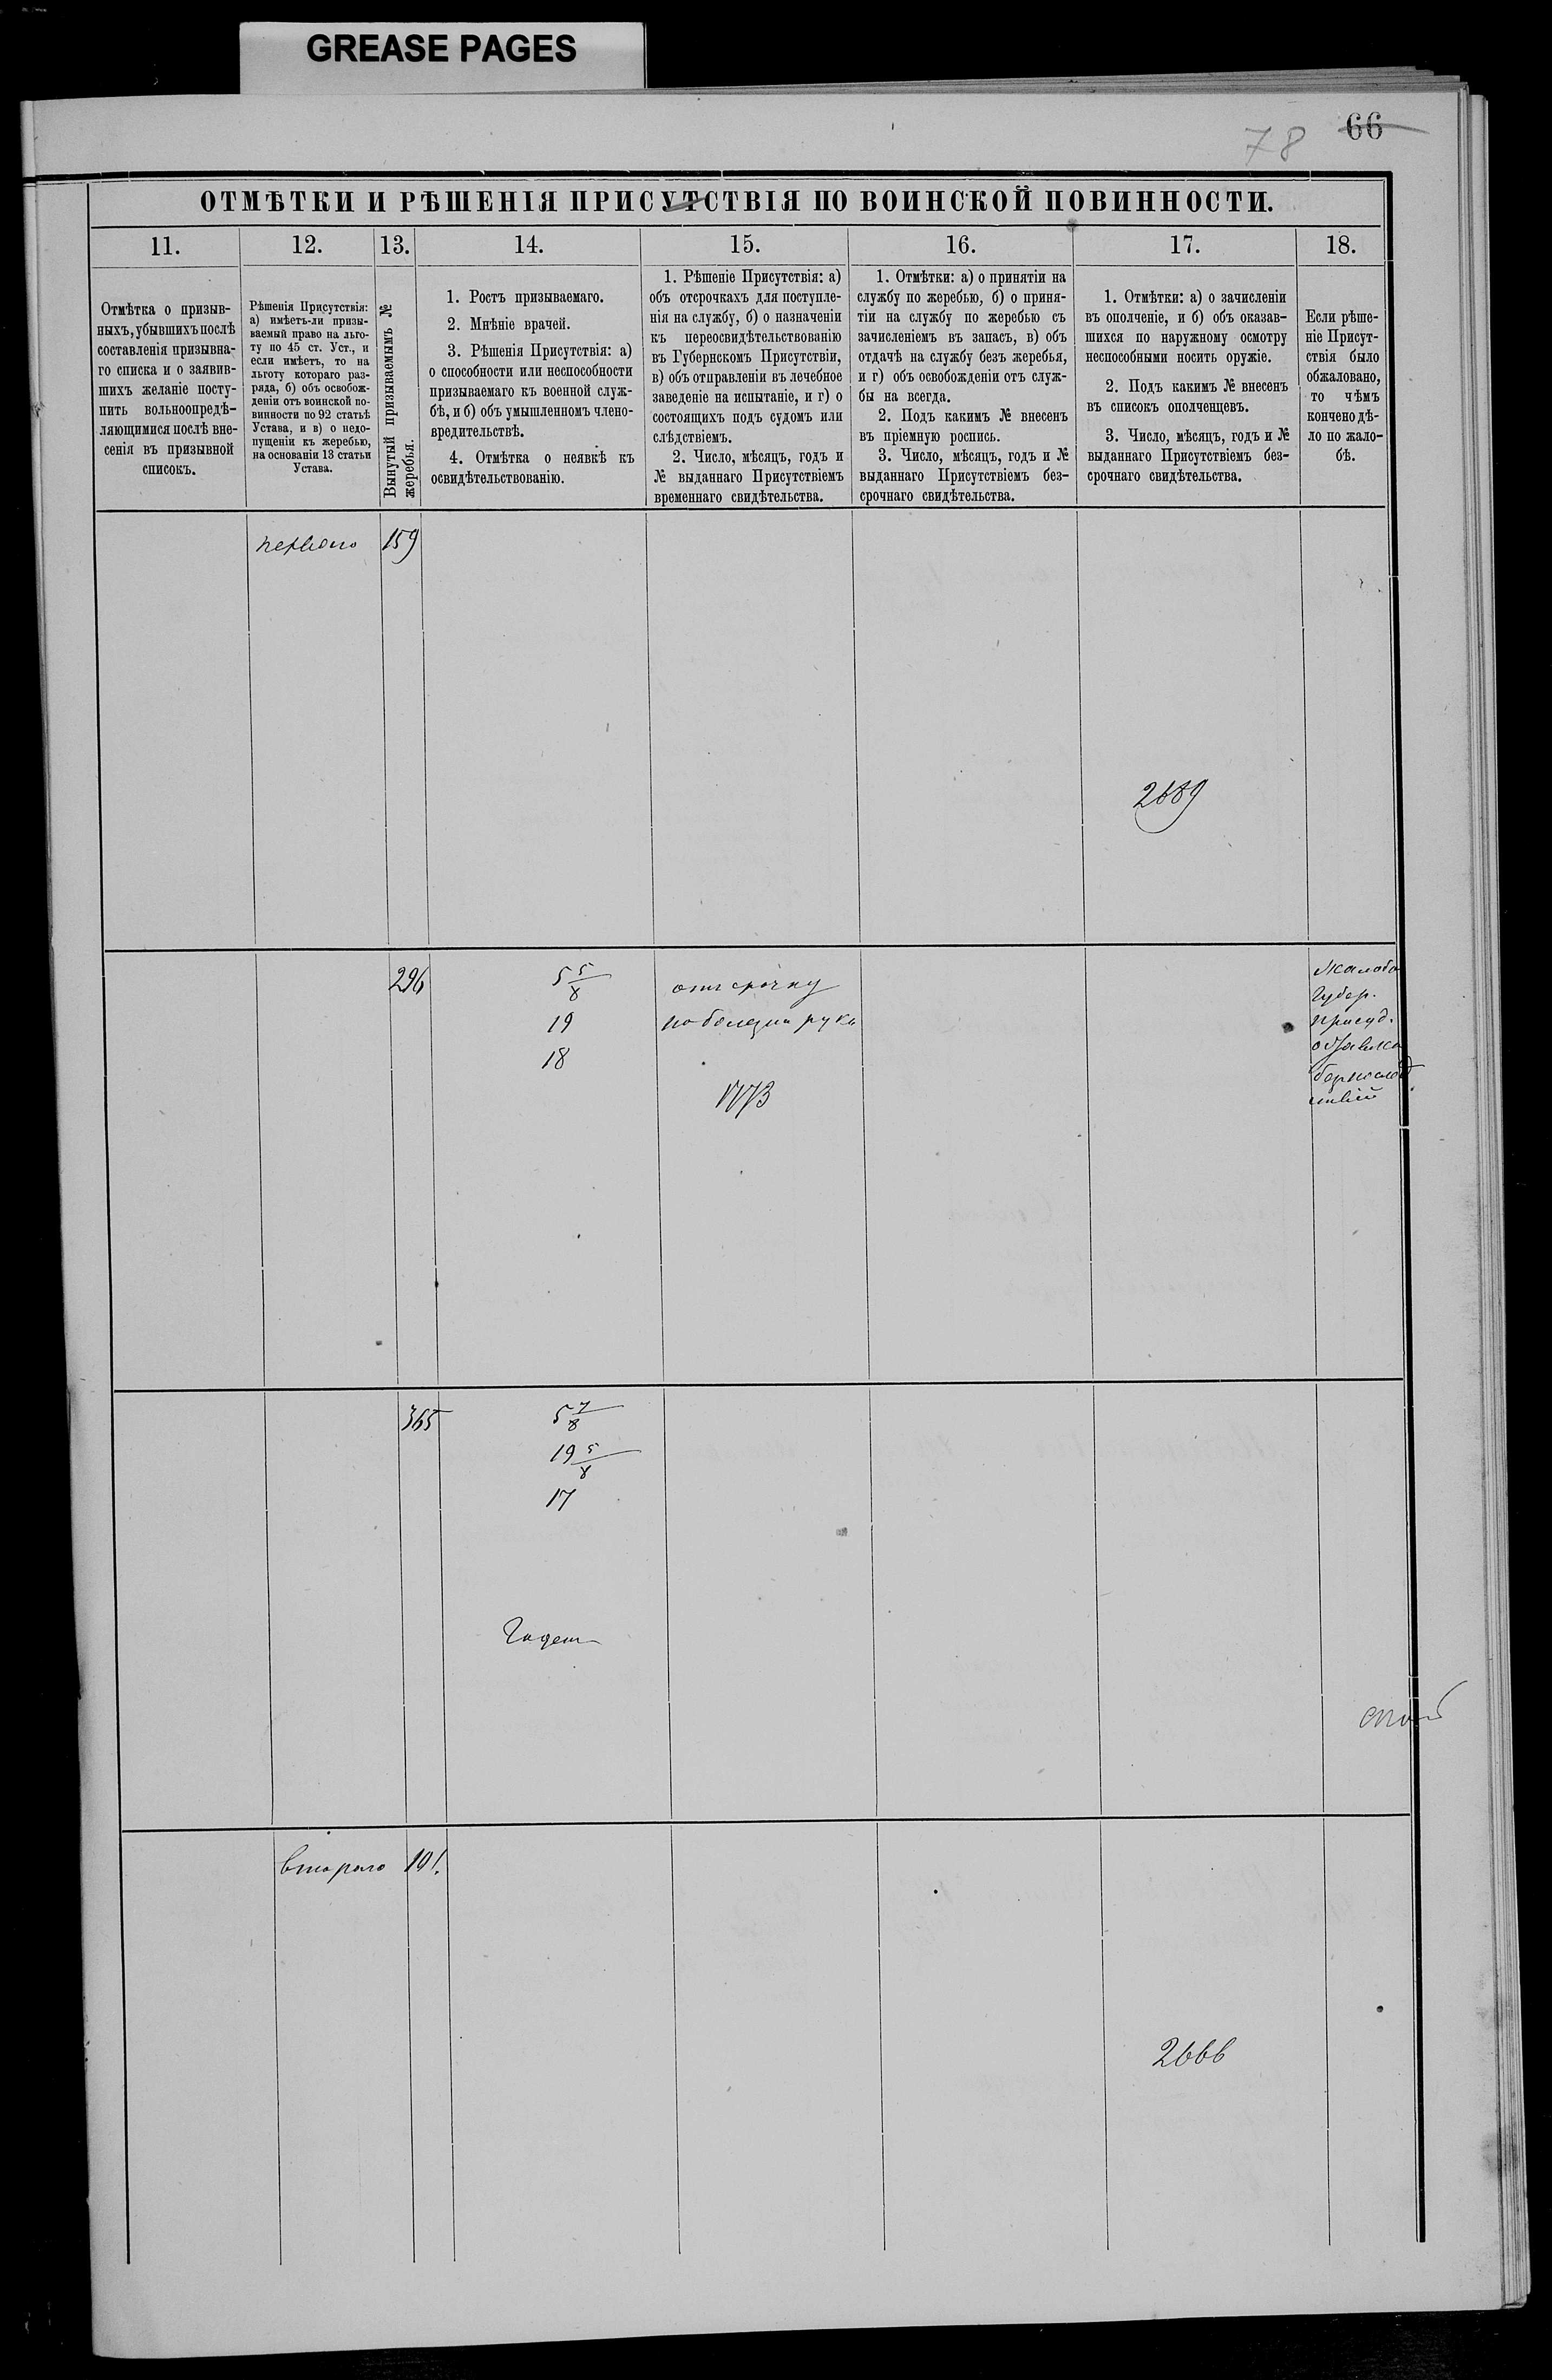 GREASE PAGES
78 66
ОТМѢТКИ И РѢШЕНІЯ ПРИСУТСТВІЯ ПО ВОИНСКОЙ ПОВИННОСТИ.
11.
Отмѣтка о призыв-
ныхъ, убывшихъ послѣ
составленія призывна-
го списка и о заявив-
шихъ желаніе посту-
пить вольноопредѣ-
ляющимися послѣ вне-
сенія въ призывной
списокъ.
12.
Рѣшенія Присутствія:
а) имѣетъ-ли призы-
ваемый право на льго-
ту по 45 ст. Уст., и
если имѣетъ, то на
льготу котораго раз-
ряда, б) объ освобож-
деніи отъ воинской по-
винности по 92 статьѣ
Устава, и в) о недо-
пущеніи къ жеребью,
на основаніи 13 статьи
Устава.
13.
Вынутый призываемымъ №
жеребья.
14.
1. Ростъ призываемаго.
2. Мнѣніе врачей.
3. Рѣшенія Присутствія: а)
о способности или неспособности
призываемаго къ военной служ-
бѣ, и б) объ умышленномъ члено-
вредительствѣ.
4. Отмѣтка о неявкѣ къ
освидѣтельствованію.
15.
1. Рѣшеніе Присутствія: а)
объ отсрочкахъ для поступле-
нія на службу, б) о назначеніи
къ переосвидѣтельствованію
въ Губернскомъ Присутствіи,
в) объ отправленіи въ лечебное
заведеніе на испытаніе, и г) о
состоящихъ подъ судомъ или
слѣдствіемъ.
2. Число, мѣсяцъ, годъ и
№ выданнаго Присутствіемъ
временнаго свидѣтельства.
16.
1. Отмѣтки: а) о принятіи на
службу по жеребью, б) о приня-
тіи на службу по жеребью съ
зачисленіемъ въ запасъ, в) объ
отдачѣ на службу безъ жеребья,
и г) объ освобожденіи отъ служ-
бы на всегда.
2. Подъ какимъ № внесенъ
въ пріемную роспись.
3. Число, мѣсяцъ, годъ и №
выданнаго Присутствіемъ без-
срочнаго свидѣтельства.
17.
1. Отмѣтки: а) о зачисленіи
въ ополченіе, и б) объ оказав-
шихся по наружному осмотру
неспособными носить оружіе.
2. Подъ какимъ № внесенъ
въ списокъ ополченцевъ.
3. Число, мѣсяцъ, годъ и №
выданнаго Присутствіемъ без-
срочнаго свидѣтельства.
18.
Если рѣше-
ніе Присут-
ствія было
обжаловано,
то чѣмъ
кончено дѣ-
ло по жало-
бѣ.
перваго 159
2689
296
5 5/8
19
18
отсрочку
по болезни руки
1773
Жалоба
Губер.
присуд.
365
5 7/8
19 5/8
17
Годенъ
втораго 191.
2666